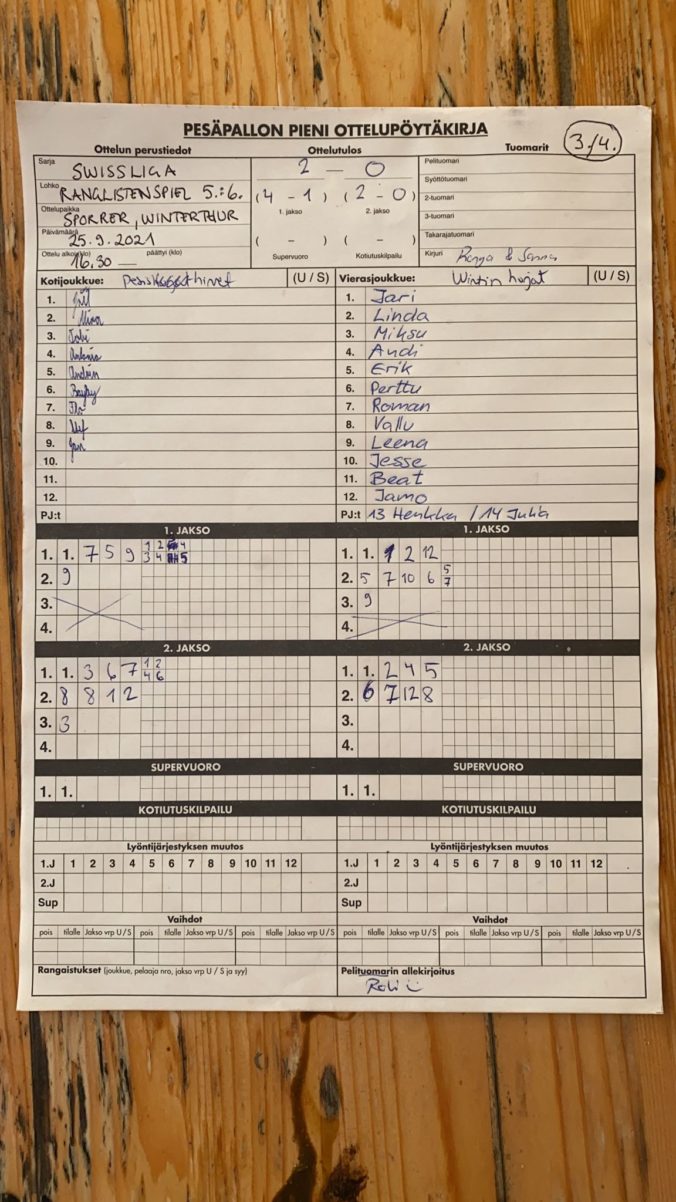 PESÄPALLON PIENI OTTELUPÖYTÄKIRJA
3./4.
Ottelun perustiedot Ottelutulos Tuomarit
Sarja SWISSLIGA 2 – 0 Pelituomari
Lohko RANGLISTENSPIEL 5.:6. (4 – 1) (2 – 0) Syöttötuomari
1. jakso 2. jakso 2-tuomari
Ottelupaikka SPORRER, WINTERTHUR 3-tuomari
Päivämäärä 25.9.2021 ( – ) ( – ) Takarajatuomari
Ottelu alkoi (klo) 16.30 — päättyi (klo) Supervuoro Kotiutuskilpailu Kirjuri
Kotijoukkue: (U / S) Vierasjoukkue: Wintin hurjat (U / S)
1. 1. Jari
2. 2. Linda
3. 3. Miksu
4. 4. Andi
5. 5. Erik
6. 6. Perttu
7. 7. Roman
8. 8. Vallu
9. 9. Leena
10. 10. Jesse
11. 11. Beat
12. 12. Jamo
PJ:t PJ:t 13 Henkka / 14 Julia
1. JAKSO 1. JAKSO
1. 1. 7 5 9 1 2 4 3 4 5 1. 1. 1 2 12
2. 9 2. 5 7 10 6 5 7
3. 3. 9
4. 4.
2. JAKSO 2. JAKSO
1. 1. 3 6 7 1 2 4 6 1. 1. 2 4 5
2. 8 8 1 2 2. 6 7 12 8
3. 3 3.
4. 4.
SUPERVUORO SUPERVUORO
1. 1. 1. 1.
KOTIUTUSKILPAILU KOTIUTUSKILPAILU
Lyöntijärjestyksen muutos Lyöntijärjestyksen muutos
1.J 1 2 3 4 5 6 7 8 9 10 11 12 1.J 1 2 3 4 5 6 7 8 9 10 11 12
2.J 2.J
Sup Sup
Vaihdot Vaihdot
pois tilalle Jakso vrp U / S pois tilalle Jakso vrp U / S pois tilalle Jakso vrp U / S pois tilalle Jakso vrp U / S pois tilalle Jakso vrp U / S pois tilalle Jakso vrp U / S
Rangaistukset (joukkue, pelaaja nro, jakso vrp U / S ja syy) Pelituomarin allekirjoitus